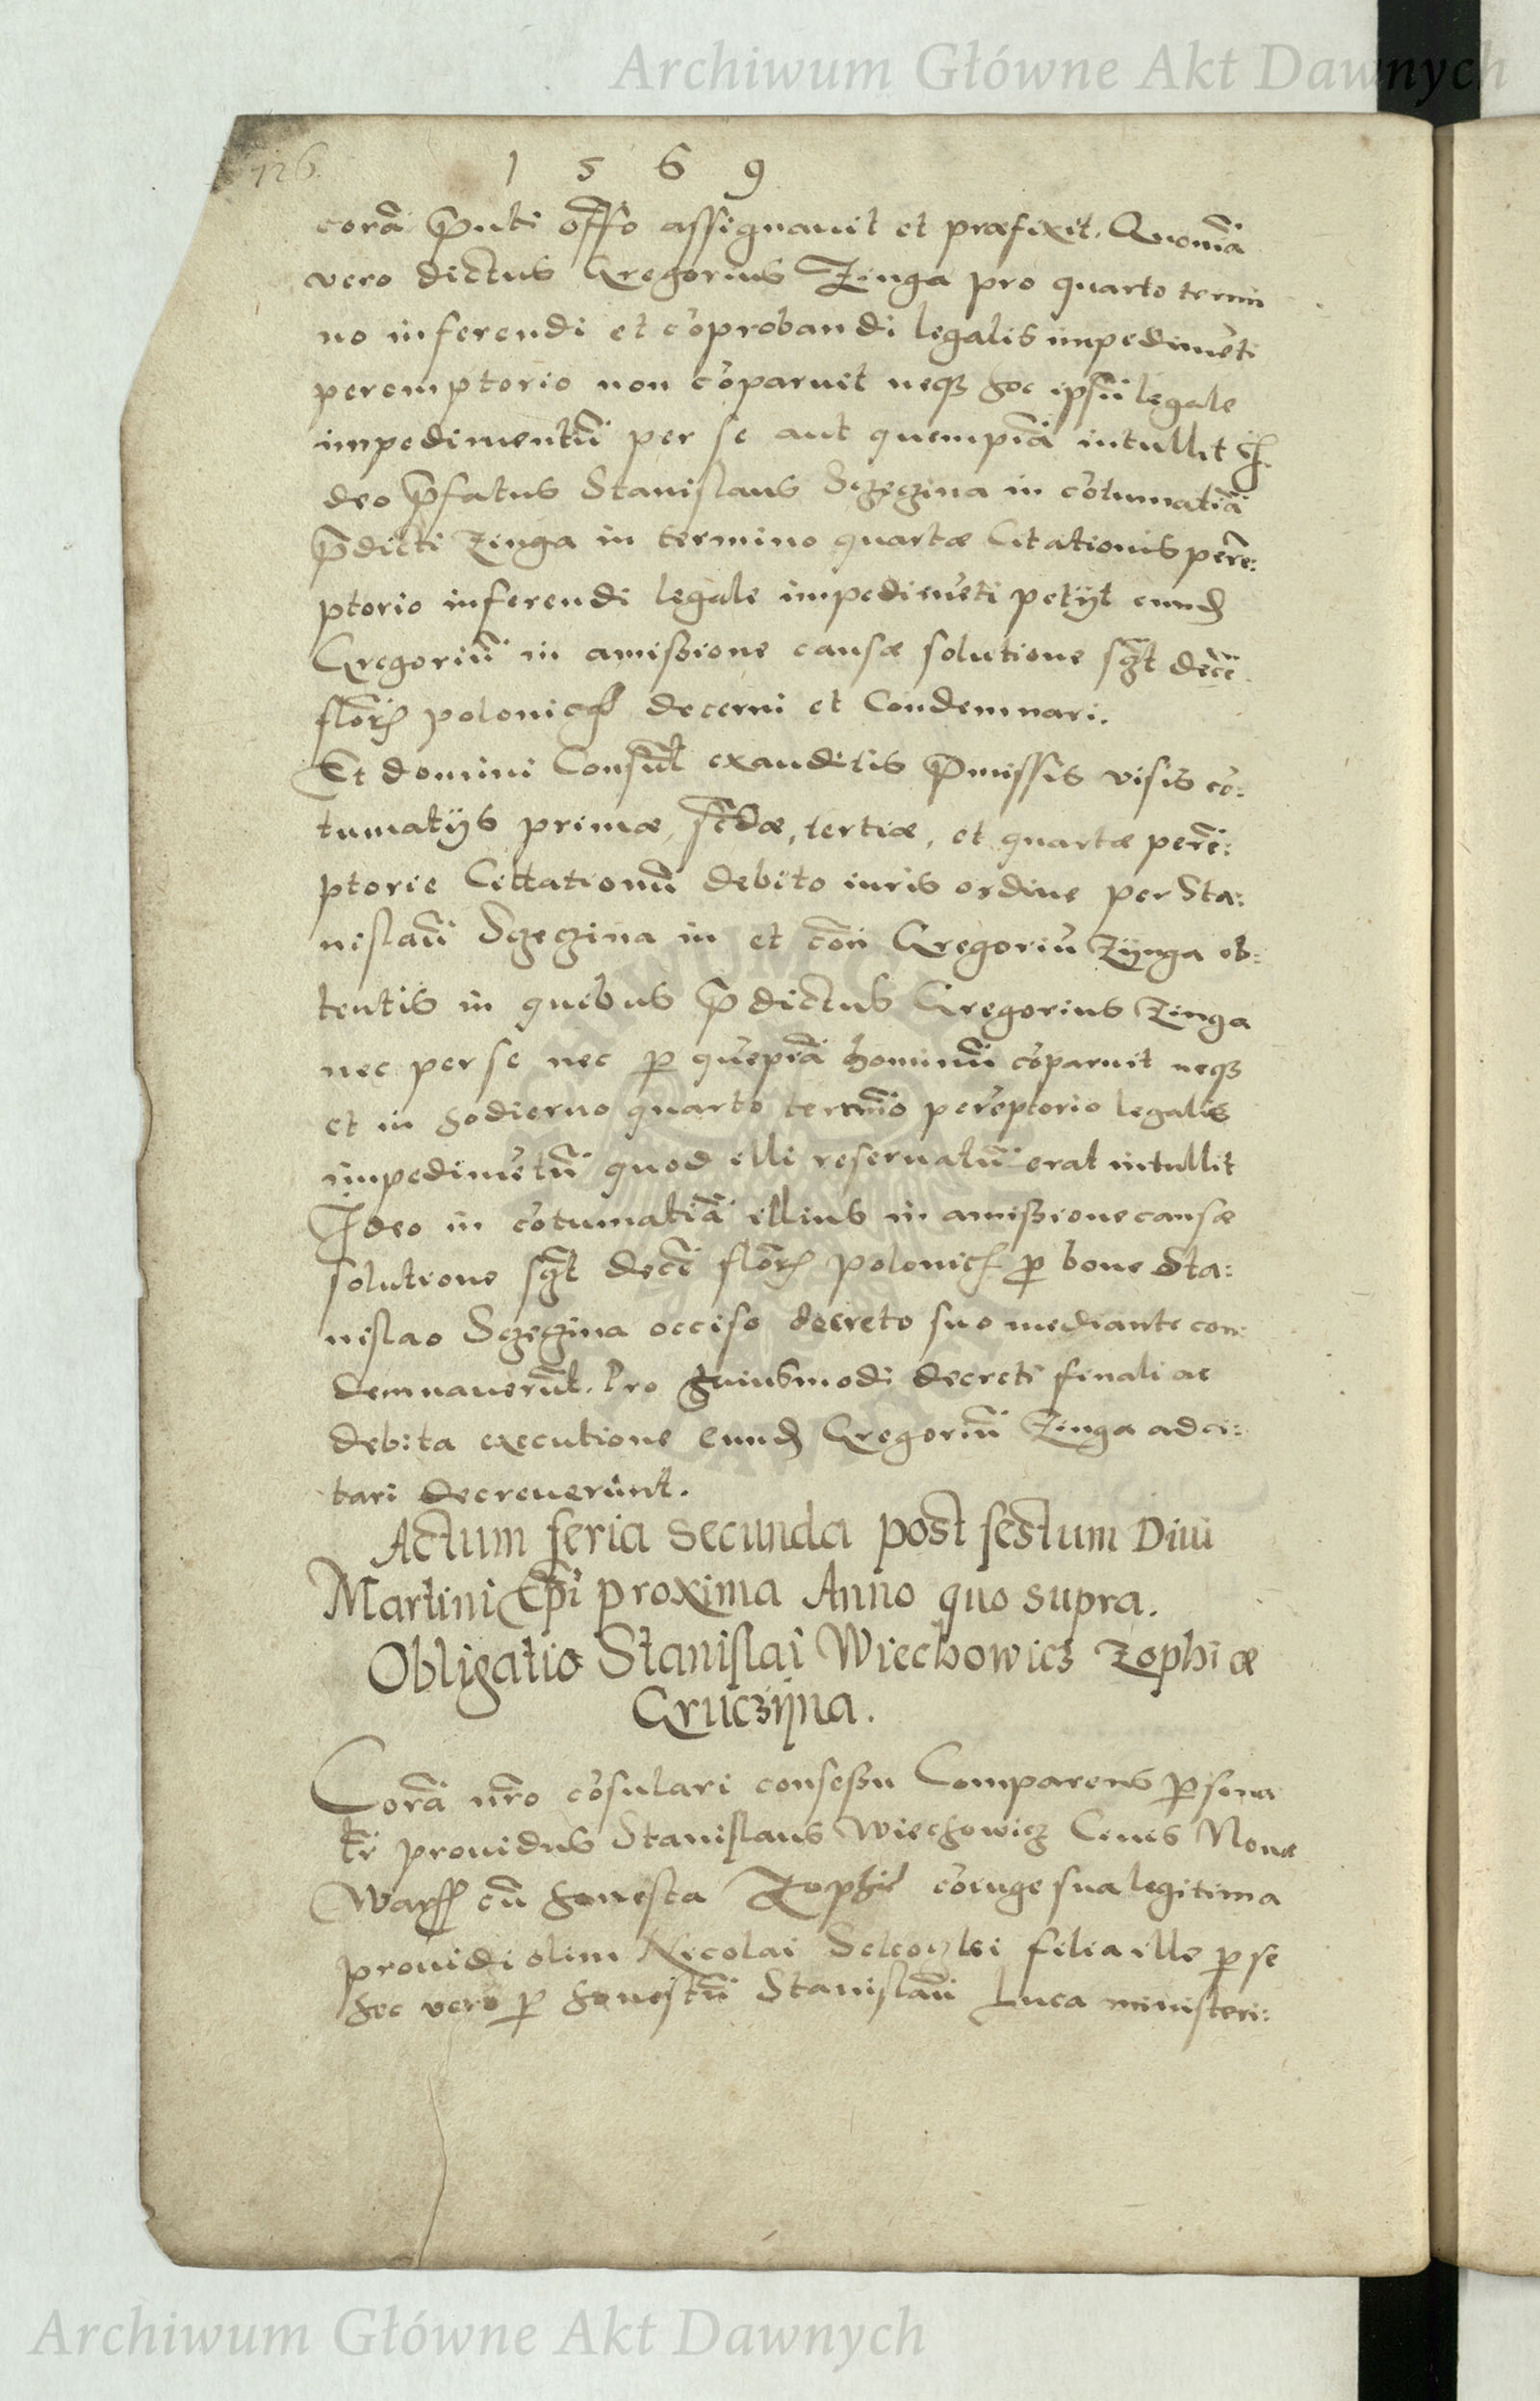 Archiwum Główne Akt Dawnych
126.
1 5 6 9
corā p̄nti offō assignauit et præfixit. Quoniā
vero dictus Gregorius Zinga pro quarto termi
no inferendi et cōprobandi legalis impedimēti
peremptorio non cōparuit neqȝ hoc ipsū legale
impedimentū per se aut quempiā intullit I
deo p̄fatus Stanislaus Sczeczina in cōtumatiā
p̄dicti Zinga in termino quartæ Citationis perē:
ptorio inferendi legale impedimēti petijt eund
Gregoriū in amissione causæ solutione sgt decē
florꝭ polonic decerni et Condemnari.
Et domini Consul exauditis p̄missis visis cō:
tumatijs primæ, scdæ, tertiæ, et quartæ perē:
ptorie Cittationū debito iuris ordine per Sta:
nislaū Sczeczina in et con Gregoriū Zÿnga ob:
tentis in quibus p̄dictus Gregorius Zinga
nec per se nec ꝑ quēpiā hominū cōparuit neqȝ
et in hodierno quarto termīo perēptorio legalis
impedimētū quod illi reseruatū erat intullit
Ideo in cōtumatiā illius in amissione causæ
solutione sgt decē florꝭ polonic ꝑ boue Sta:
nislao Sczeczina occiso decreto suo mediante con:
demnauerūt. Pro huiusmodi decreti finali ac
debita executione eund Gregoriū Zinga adci:
tari decreuerunt.
Actum feria secunda post festum Diui
Martini Epī proxima Anno quo supra.
Obligatio Stanislai Wiechowicz Zophiæ
Gruczijna.
Corā nr̄o cōsulari consessu Comparens ꝑsona
lr̄ prouidus Stanislaus Wiechowicz Ciuis Noue
Warss cū honesta Zophia cōiuge sua legitima
prouidi olim Nicolai filia ille ꝑ se
hec vero ꝑ honestū Stanislaū Luca ministeri:
Archiwum Główne Akt Dawnych